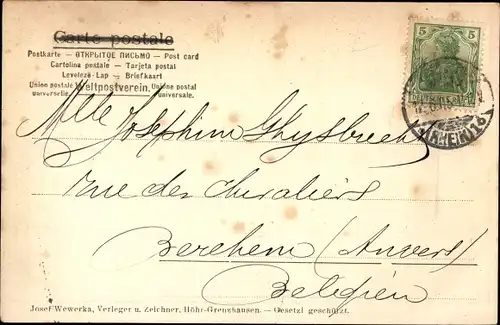 Carte postale
Postkarte — ОТКРЫТОЕ ПИСЬМО — Post card
Cartolina postale — Tarjeta postal
Levelezö-Lap — Briefkaart
Union postale universelle. Weltpostverein. Union postal universale.
5 5
Mlle Josephine Ghysbrecht
rue des chevaliers
Berchem (Anvers)
Belgien
Josef Wewerka, Verleger u. Zeichner, Höhr-Grenzhausen. — Gesetzl geschützt.